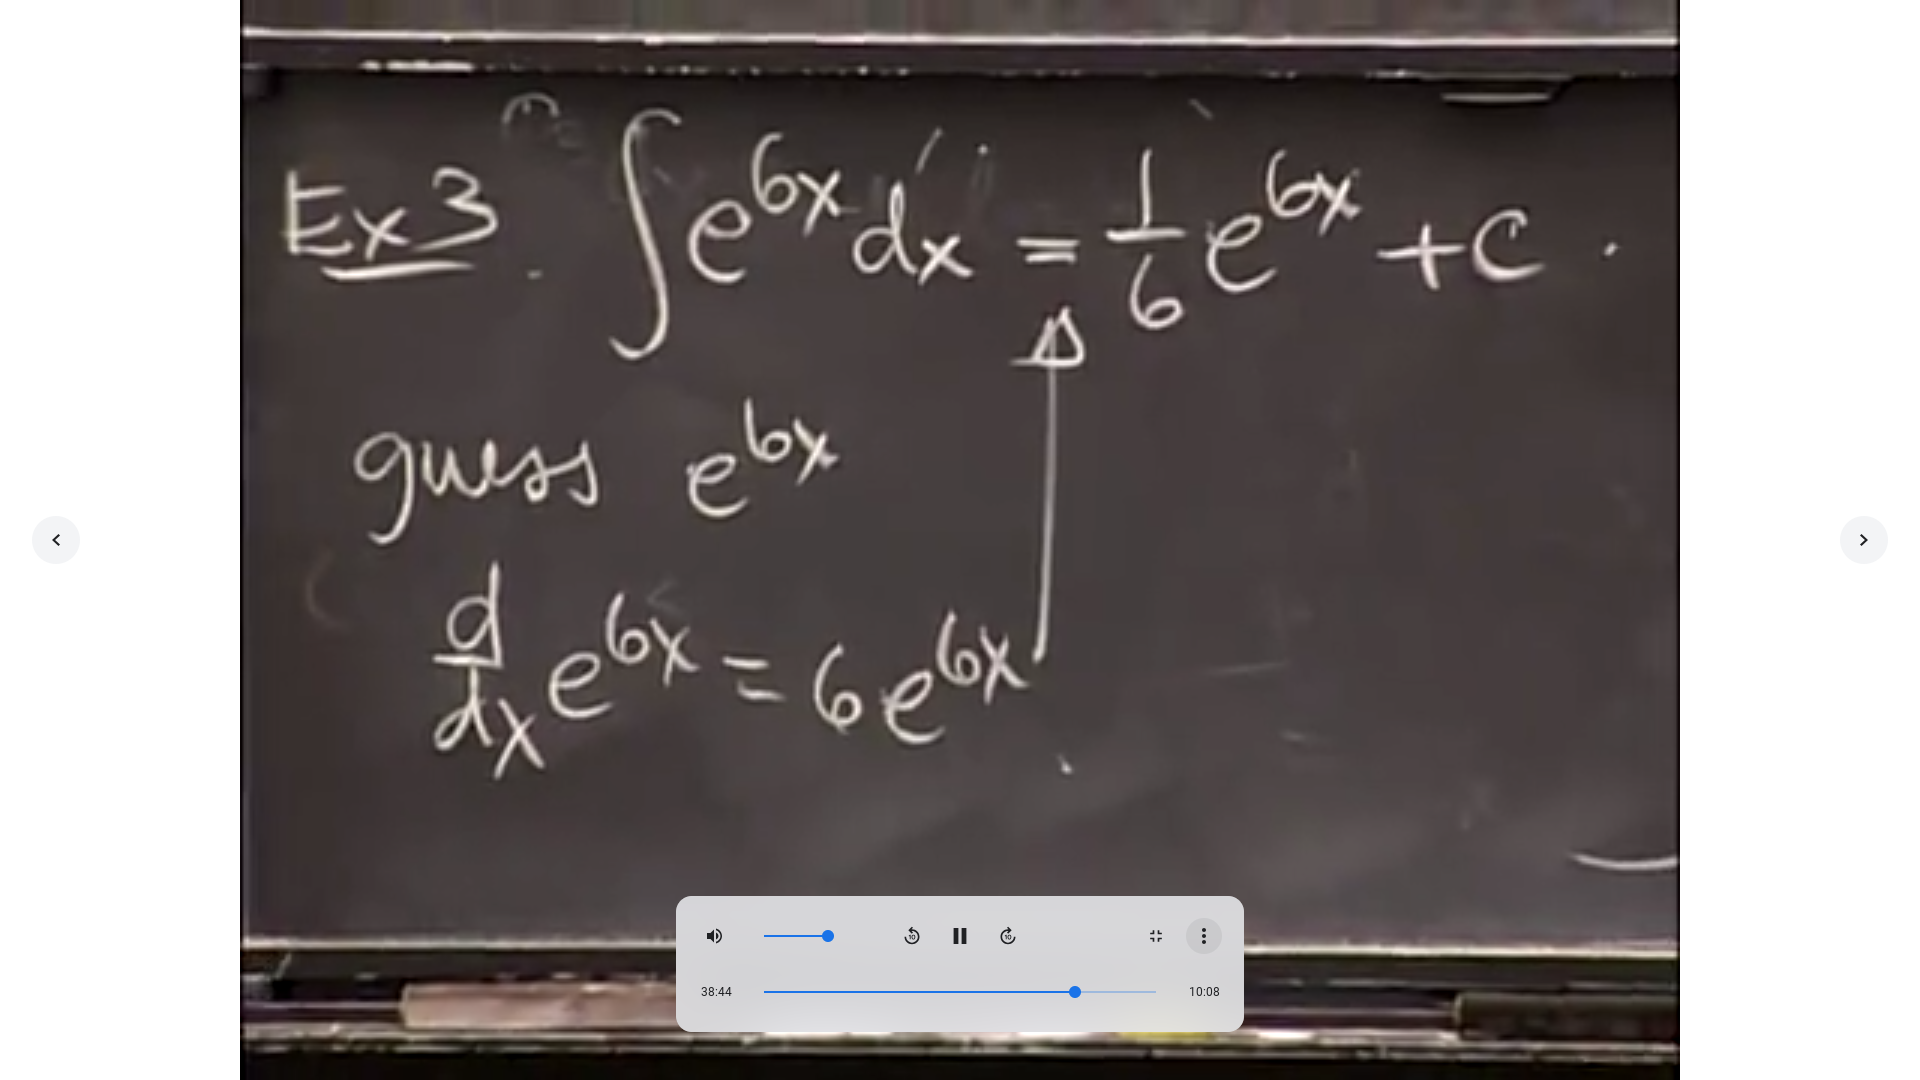 Ex 3. ∫e^{6x} dx = \frac{1}{6} e^{6x} + c.
guess e^{6x}
\frac{d}{dx} e^{6x} = 6e^{6x}
10 10
38:44 10:08